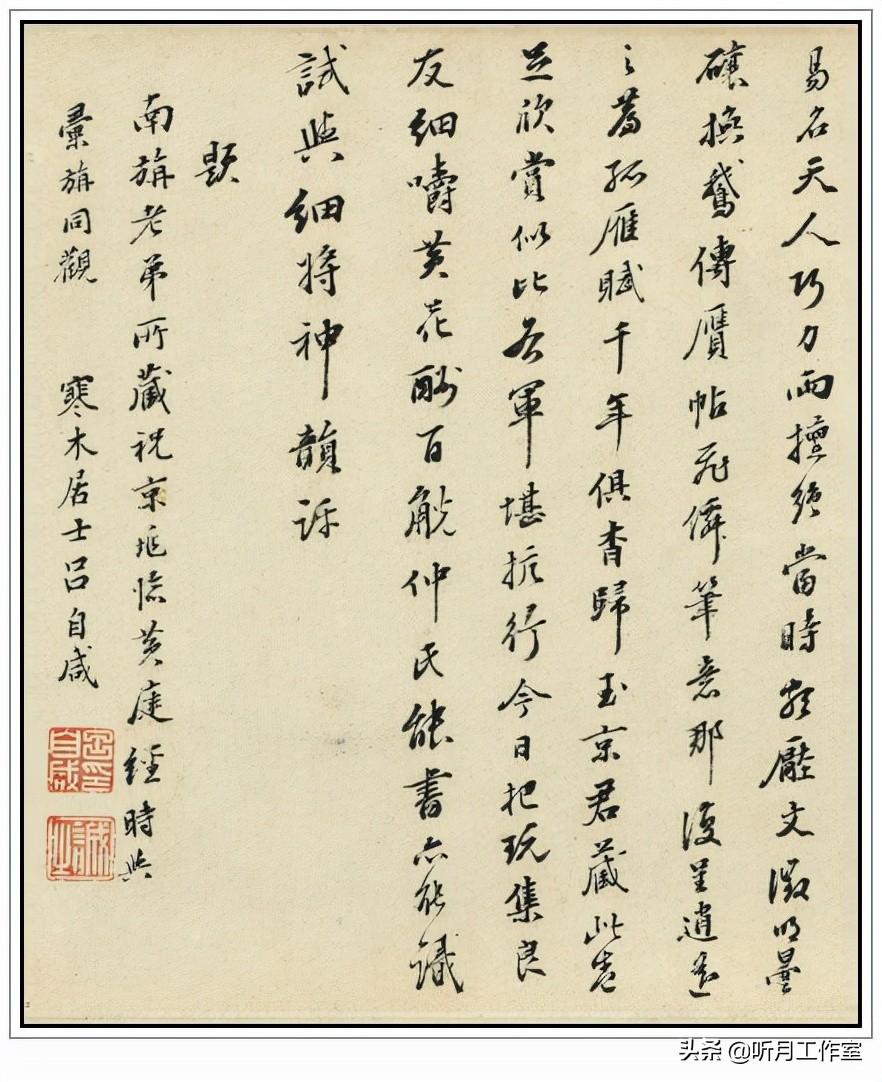 易名天人巧力兩擅絕當時頗壓文徵明曇
礦換鵝傳贋帖飛僊筆意那復呈逍遙
之篇孤雁賦千年俱杳歸玉京君藏此卷
足欣賞似比右軍堪抗行今日把玩集良
友細嚼黃花酬百觥仲氏能書亦能識
試與細將神韻評
題
南旃老弟所藏祝京兆臨黃庭經時與
彙旃同觀 寒木居士呂自咸
頭条 @听月工作室